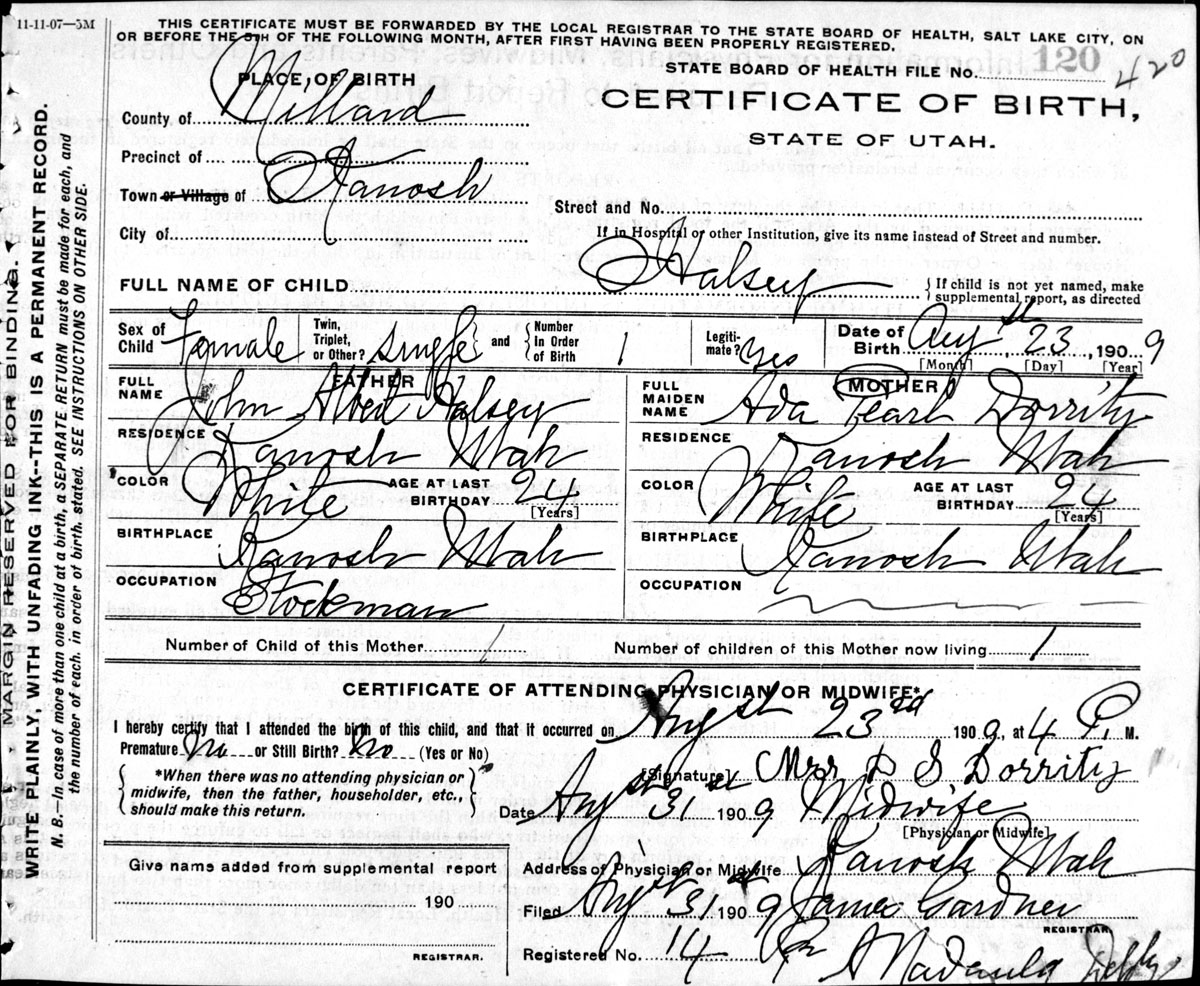 11-11-07—5M
THIS CERTIFICATE MUST BE FORWARDED BY THE LOCAL REGISTRAR TO THE STATE BOARD OF HEALTH, SALT LAKE CITY, ON
OR BEFORE THE 5TH OF THE FOLLOWING MONTH, AFTER FIRST HAVING BEEN PROPERLY REGISTERED.
STATE BOARD OF HEALTH FILE No. 120 420
PLACE OF BIRTH
CERTIFICATE OF BIRTH,
STATE OF UTAH.
County of Millard
Precinct of
Town or Village of Kanosh
Street and No.
City of
If in Hospital or other Institution, give its name instead of Street and number.
FULL NAME OF CHILD Halsey
{ If child is not yet named, make
supplemental report, as directed
Sex of Child Female
Twin, Triplet, or Other? single } and { Number In Order of Birth 1
Legiti-mate? yes
Date of Birth Augst 23, 1909
[Month] [Day] [Year]
FATHER
FULL NAME John Albert Halsey
RESIDENCE Kanosh Utah
COLOR White AGE AT LAST BIRTHDAY 24
[Years]
BIRTHPLACE Kanosh Utah
OCCUPATION Stockman
MOTHER
FULL MAIDEN NAME Ada Pearl Dorrity
RESIDENCE Kanosh Utah
COLOR White AGE AT LAST BIRTHDAY 24
[Years]
BIRTHPLACE Kanosh Utah
OCCUPATION
Number of Child of this Mother 1 Number of children of this Mother now living 1
CERTIFICATE OF ATTENDING PHYSICIAN OR MIDWIFE*
I hereby certify that I attended the birth of this child, and that it occurred on Augst 23rd 1909, at 4 P. M.
Premature No or Still Birth? No (Yes or No)
{ *When there was no attending physician or
midwife, then the father, householder, etc.,
should make this return. }
[Signature] Mrs D S Dorrity
Date Augst 31st 1909 Midwife
[Physician or Midwife]
Address of Physician or Midwife Kanosh Utah
Filed Augst 31st 1909 James Gardner
REGISTRAR.
Registered No. 14 Per
Give name added from supplemental report
190
REGISTRAR.
MARGIN RESERVED FOR BINDING
WRITE PLAINLY, WITH UNFADING INK--THIS IS A PERMANENT RECORD.
N. B.—In case of more than one child at a birth, a SEPARATE RETURN must be made for each, and
the number of each. in order of birth. stated. SEE INSTRUCTIONS ON OTHER SIDE.